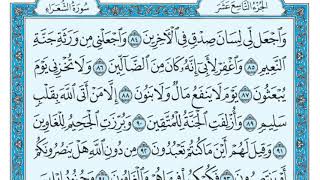 الجزء التاسع عشر
سورة الشعراء
وَٱجْعَل لِّى لِسَانَ صِدْقٍ فِى ٱلْءَاخِرِينَ ٨٤ وَٱجْعَلْنِى مِن وَرَثَةِ جَنَّةِ
ٱلنَّعِيمِ ٨٥ وَٱغْفِرْ لِأَبِىٓ إِنَّهُۥ كَانَ مِنَ ٱلضَّآلِّينَ ٨٦ وَلَا تُخْزِنِى يَوْمَ
يُبْعَثُونَ ٨٧ يَوْمَ لَا يَنفَعُ مَالٌ وَلَا بَنُونَ ٨٨ إِلَّا مَنْ أَتَى ٱللَّهَ بِقَلْبٍ
سَلِيمٍ ٨٩ وَأُزْلِفَتِ ٱلْجَنَّةُ لِلْمُتَّقِينَ ٩٠ وَبُرِّزَتِ ٱلْجَحِيمُ لِلْغَاوِينَ
٩١ وَقِيلَ لَهُمْ أَيْنَ مَا كُنتُمْ تَعْبُدُونَ ٩٢ مِن دُونِ ٱللَّهِ هَلْ يَنصُرُونَكُمْ